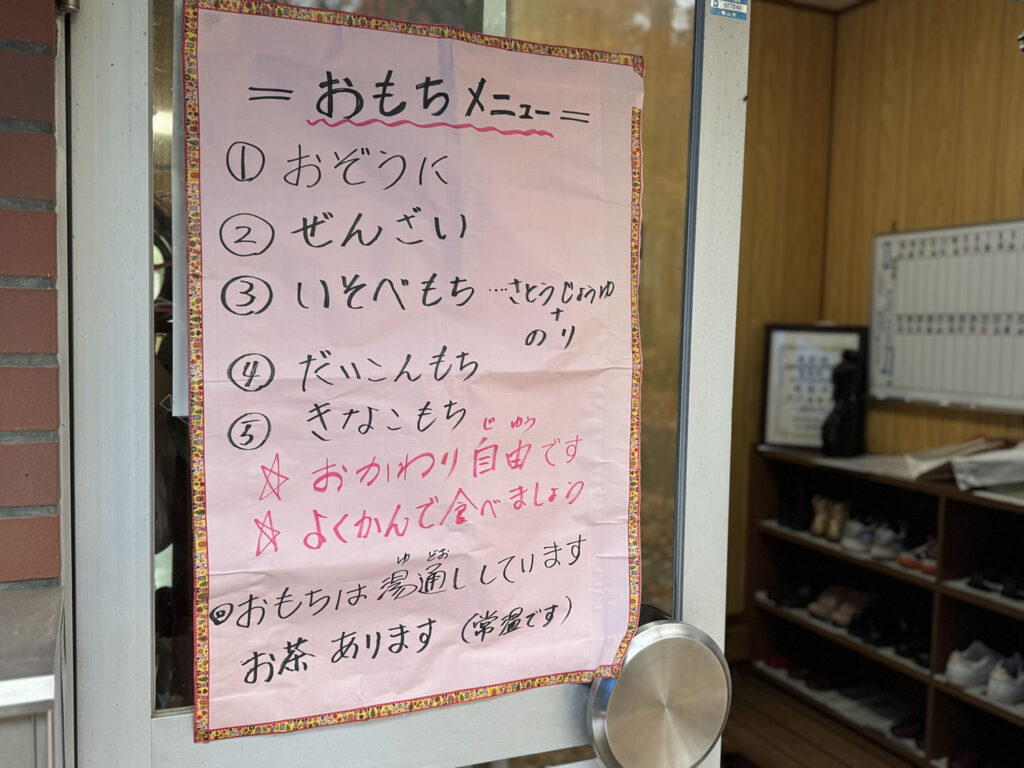 = おもちメニュー =
① おぞうに
② ぜんざい
③ いそべもち …さとうじょうゆ
+
のり
④ だいこんもち
⑤ きなこもち
じゆう
☆ おかわり自由です
☆ よくかんで食べましょう
ゆどお
◎おもちは湯通ししています
お茶 あります (常温です)